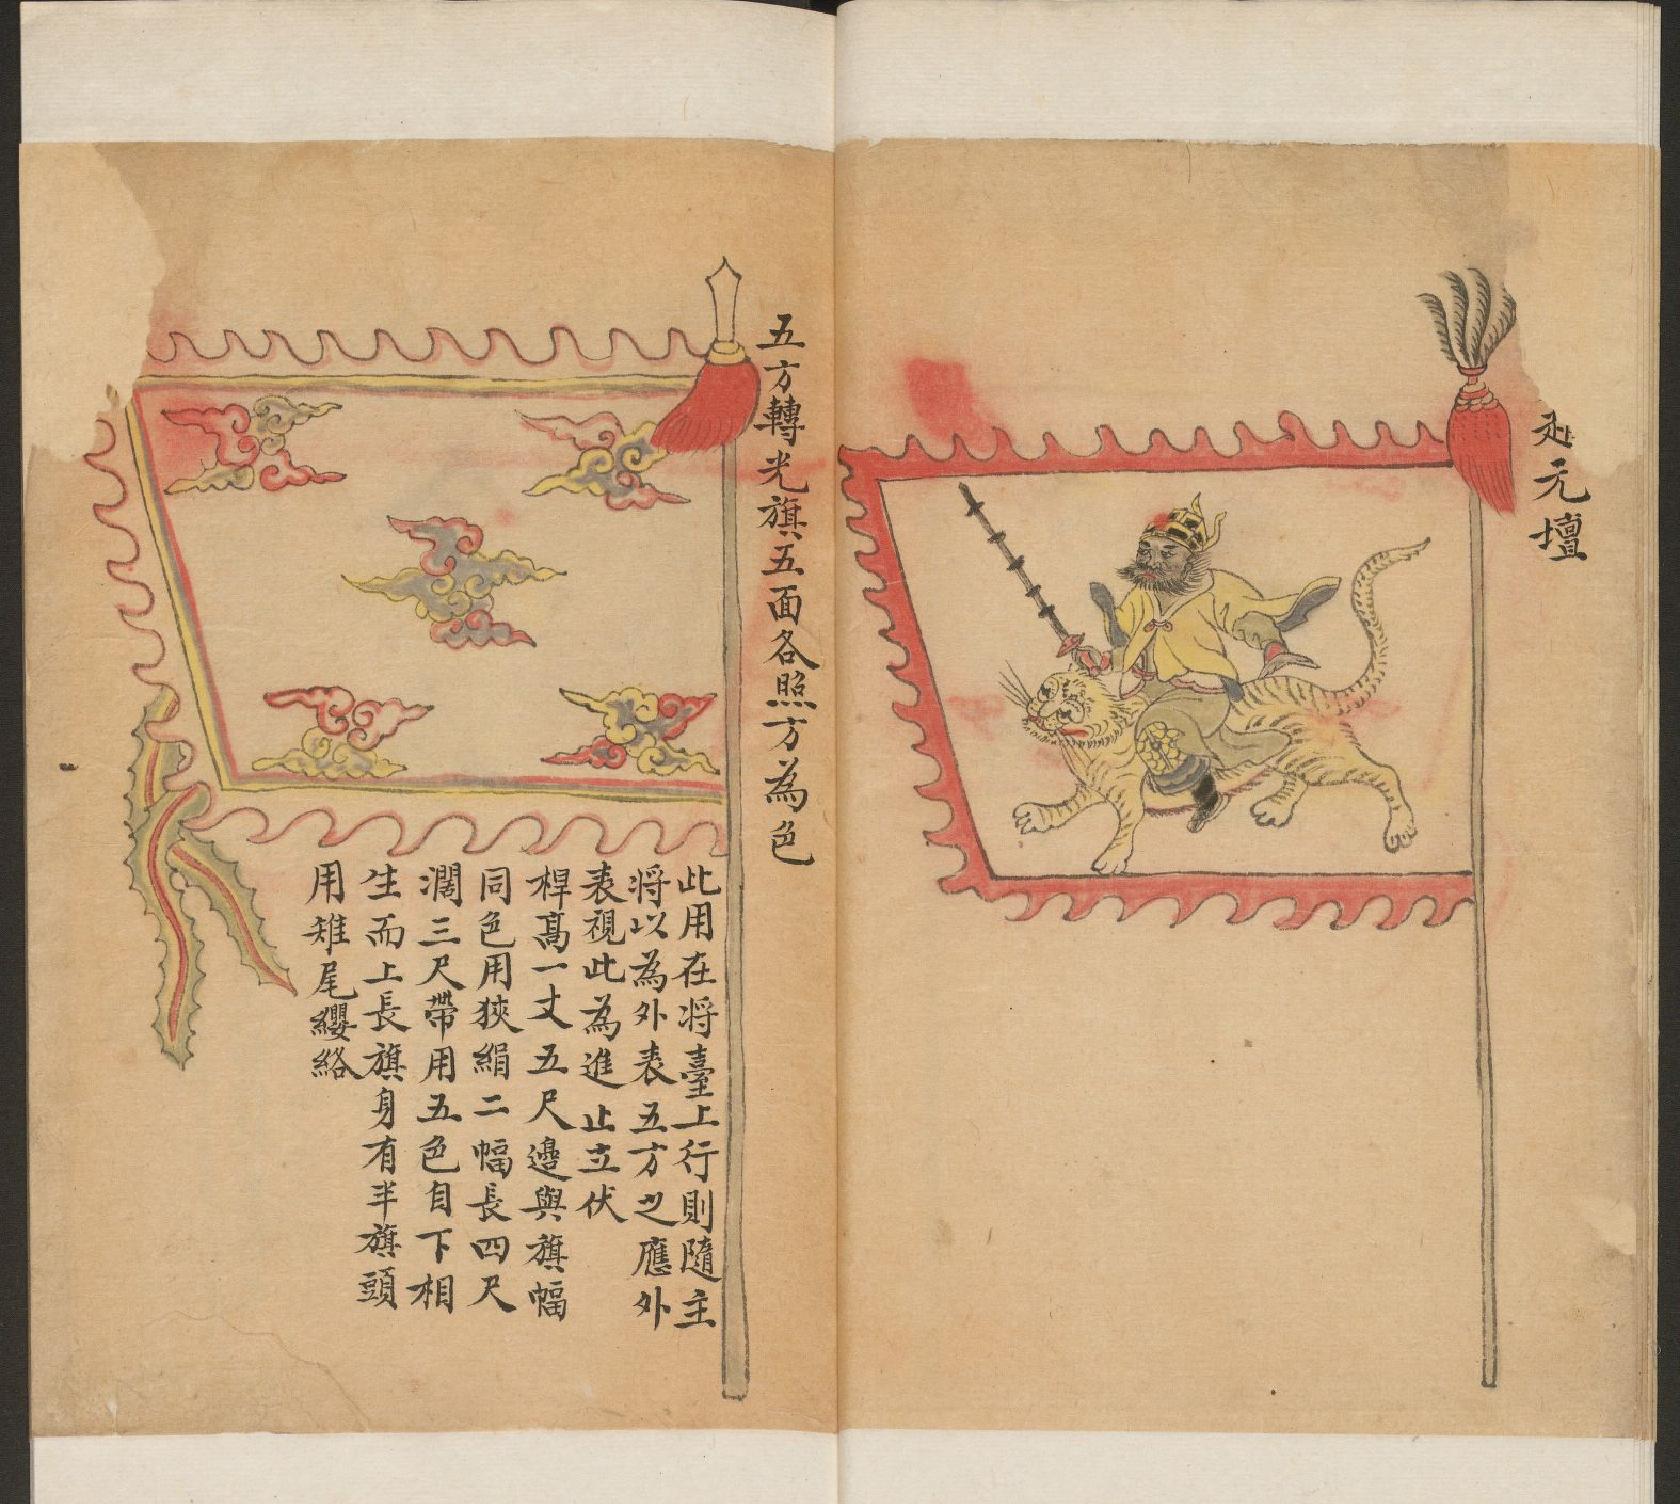 元壇
五方轉光旗五面各照方為色
此用在将臺上行則隨主
将以為外表五方之應外
表視此為進止立伏
桿髙一丈五尺邉與旗幅
同色用狹絹二幅長四尺
濶三尺帶用五色自下相
生而上長旗身有半旗頭
用雉尾纓絡